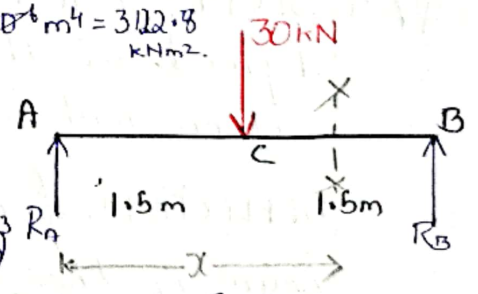 m⁴ = 3122.8
kNm2.
30kN
A
B
C
1.5m
1.5m
RA
RB
x